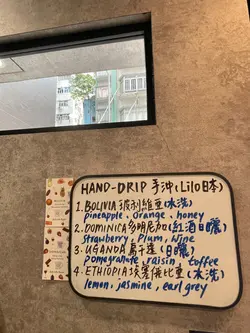 HAND-DRIP 手沖 (Lilo日本)
1. BOLIVIA 玻利維亞 (水洗)
pineapple, orange, honey
2. DOMINICA 多明尼加 (紅酒日曬)
strawberry, plum, wine
3. UGANDA 烏干達 (日曬)
pomegranate, raisin, toffee
4. ETHIOPIA 埃塞俄比亞 (水洗)
lemon, jasmine, earl grey